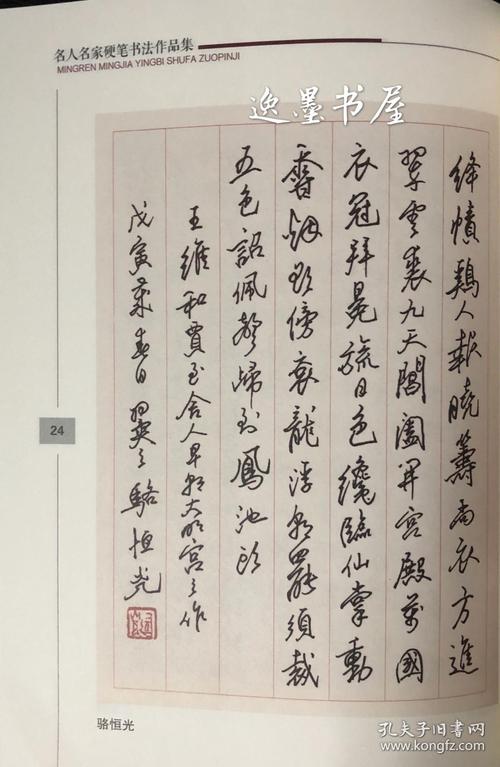 名人名家硬笔书法作品集
MINGREN MINGJIA YINGBI SHUFA ZUOPINJI
逸墨书屋
绛幘鷄人報曉籌尚衣方進
翠雲裘九天閶闔開宫殿萬國
衣冠拜冕旒日色纔臨仙掌動
香烟欲傍衮龍浮朝罷須裁
五色詔佩聲歸到鳳池頭
王維和賈至舍人早朝大明宫之作
戊寅年春日 駱恒光
24
骆恒光
孔夫子旧书网
www.kongfz.com